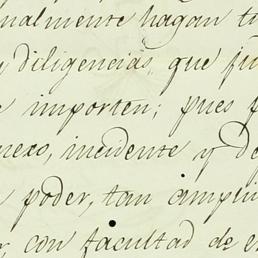 nalmente hagan t
y diligencias, que ju
e importen; pues p
nexo, incidente y de
poder, tan ampli
r, con facultad de e